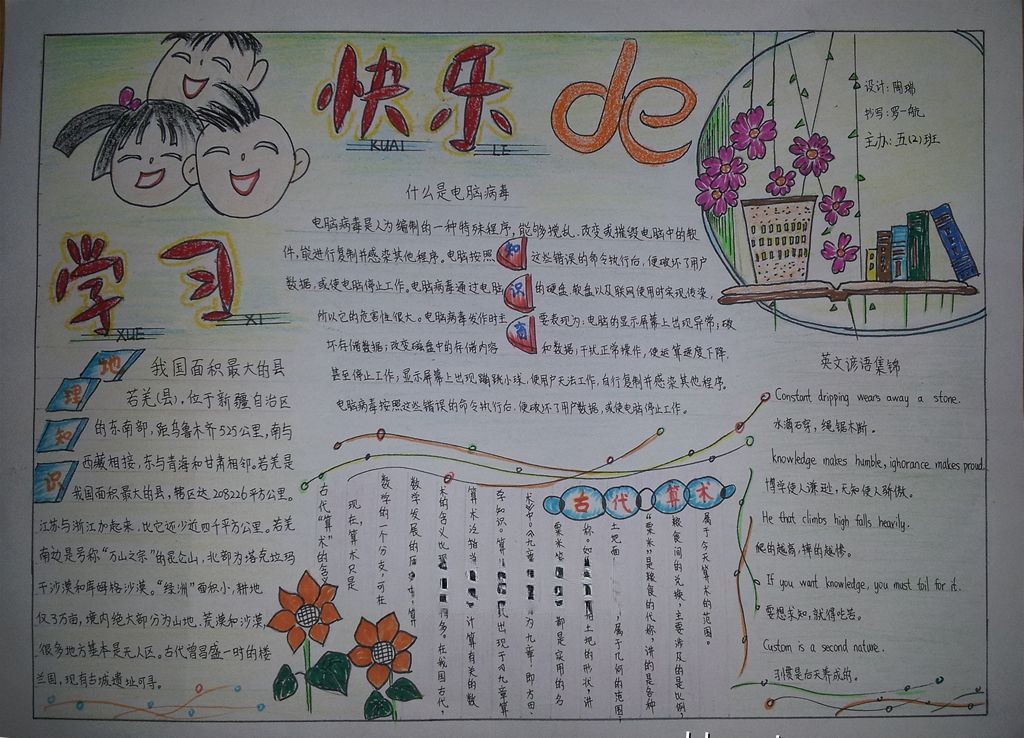 快乐de
KUAI LE
学习
XUE XI
设计:陶瑞
抄写:罗一航
主办:五(2)班
什么是电脑病毒
电脑病毒是人为编制的一种特殊程序,能够搅乱、改变或摧毁电脑中的软
件,能进行复制并感染其他程序。电脑按照这些错误的命令执行后,便破坏了用户
数据,或使电脑停止工作。电脑病毒通过电脑的硬盘、软盘以及联网使用时实现传染,
所以它的危害性很大。电脑病毒发作时主要表现为:电脑的显示屏幕上出现异常;破
坏存储数据;改变磁盘中的存储内容和数据;干扰正常操作,使运算速度下降,
甚至停止工作;显示屏幕上出现蹦跳小球,使用户无法工作,自行复制并感染其他程序。
电脑病毒按照这些错误的命令执行后,便破坏了用户数据,或使电脑停止工作。
知识窗
地理知识
我国面积最大的县
若羌(县),位于新疆自治区
的东南部,距乌鲁木齐525公里,南与
西藏相接,东与青海和甘肃相邻。若羌是
我国面积最大的县,辖区达208226平方公里。
江苏与浙江加起来,比它还少近四千平方公里。若羌
南边是号称“万山之宗”的昆仑山,北部为塔克拉玛
干沙漠和库姆格沙漠。“绿洲”面积小,耕地
仅3万亩,境内绝大部分为山地、荒漠和沙漠,
很多地方基本是无人区。古代曾昌盛一时的楼
兰国,现有古城遗址可寻。
古代算术
古代“算术”的含
现在,算术只是
数学的一个分支,可在
数学发展的历 算
术的含义比现 得多。在我国古代,
算术泛指当 计算有关的数
学知识。算 出现于《九章算
术》中。《九章 为九章,即方田、
粟米、 都是实用的名
称。如 指土地的形状,讲
土地面 ,属于几何的范围;
“粟米”是粮食的代称,讲的是各种
粮食间的兑换,主要涉及的是比例,
属于今天算术的范围。
英文谚语集锦
Constant dripping wears away a stone.
水滴石穿,绳锯木断。
knowledge makes humble, ignorance makes proud.
博学使人谦逊,无知使人骄傲。
He that climbs high falls heavily.
爬的越高,摔的越惨。
If you want knowledge, you must toil for it.
要想求知,就得吃苦。
Custom is a second nature.
习惯是后天养成的。